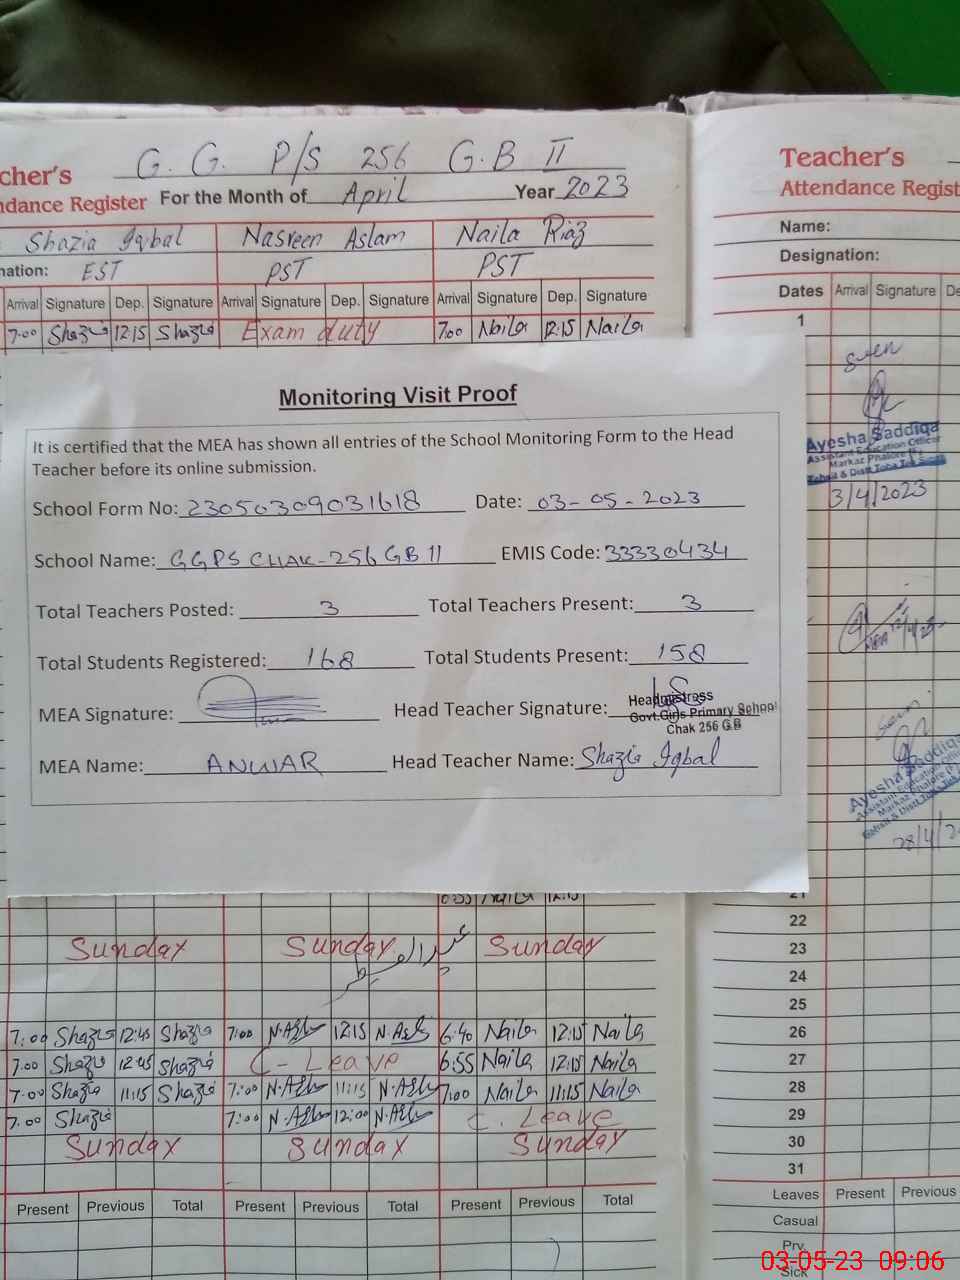 cher's G. G. P/S 256 G.B II
ndance Register For the Month of April Year 2023
Shazia Iqbal Nasreen Aslam Naila Riaz
nation: EST PST PST
Arrival Signature Dep. Signature Arrival Signature Dep. Signature Arrival Signature Dep. Signature
7:00 Shazia 12:15 Shazia Exam duty 7:00 Naila 12:15 Naila
Monitoring Visit Proof
It is certified that the MEA has shown all entries of the School Monitoring Form to the Head
Teacher before its online submission.
School Form No: 23050309031618 Date: 03-05-2023
School Name: GGPS CHAK-256 GB II EMIS Code: 33330434
Total Teachers Posted: 3 Total Teachers Present: 3
Total Students Registered: 168 Total Students Present: 158
MEA Signature: Head Teacher Signature:
Headmistress
Govt.Girls Primary School
Chak 256 G.B
MEA Name: ANWAR Head Teacher Name: Shazia Iqbal
6:55 Naila 12:15
Sunday Sunday Sunday
عید الفطر
7:00 Shazia 12:45 Shazia 7:00 N.Aslam 12:15 N.Aslam 6:40 Naila 12:15 Naila
7:00 Shazia 12:45 Shazia C- Leave 6:55 Naila 12:15 Naila
7:00 Shazia 11:15 Shazia 7:00 N.Aslam 11:15 N.Aslam 7:00 Naila 11:15 Naila
7:00 Shazia 7:00 N.Aslam 12:00 N.Aslam C. Leave
Sunday Sunday Sunday
Present Previous Total Present Previous Total Present Previous Total
Teacher's
Attendance Regist
Name:
Designation:
Dates Arrival Signature De
1
Seen
Ayesha Saddiqa
Assistant Education Officer
Markaz Phalore (F)
Tehsil & Distt Toba Tek Singh
3/4/2023
Seen
Ayesha Saddiqa
Assistant Education Offic
Markaz Phalore (F)
Tehsil & Distt Toba Tek
28/4/2
21
22
23
24
25
26
27
28
29
30
31
Leaves Present Previous
Casual
Prv.
Sick
03-05-23 09:06